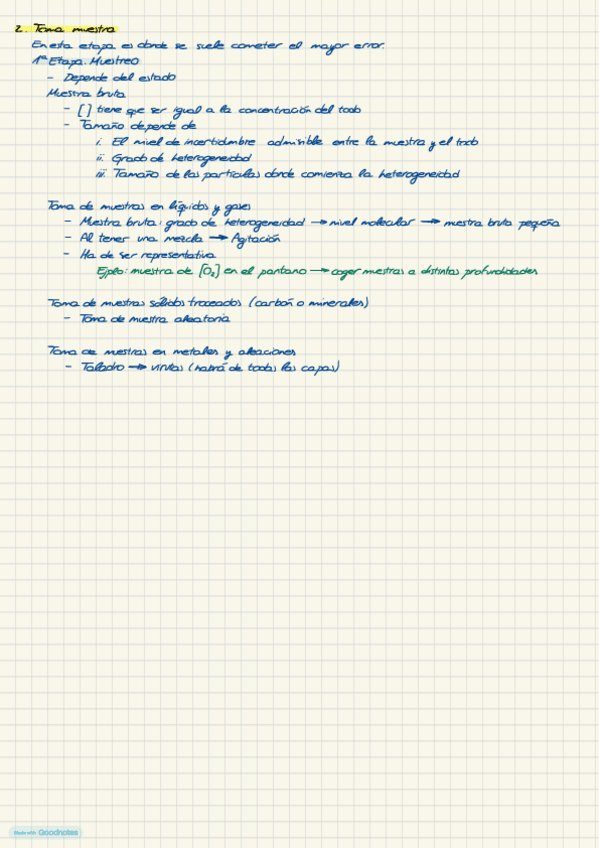 2. Toma muestra
En esta etapa es donde se suele cometer el mayor error.
1ª Etapa. Muestreo
- Depende del estado
Muestra bruta
- [ ] tiene que ser igual a la concentración del todo
- Tamaño depende de
i. El nivel de incertidumbre admisible entre la muestra y el todo
ii. Grado de heterogeneidad
iii. Tamaño de las partículas donde comienza la heterogeneidad
Toma de muestras en líquidos y gases
- Muestra bruta: grado de heterogeneidad → nivel molecular → muestra bruta pequeña
- Al tener una mezcla → Agitación
- Ha de ser representativa
Ejplo: muestra de [O₂] en el pantano → coger muestras a distintas profundidades
Toma de muestras sólidos troceados (carbón o minerales)
- Toma de muestra aleatoria
Toma de muestras en metales y aleaciones
- Taladro → virutas (habrá de todas las capas)
Made with Goodnotes